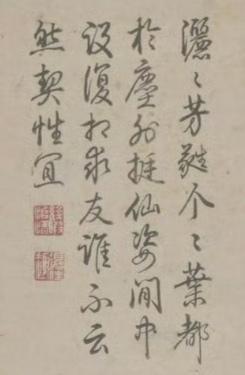 灑〻芳蕤个〻葉都
於塵外挺仙姿閒中
設復相求友誰不云
然契性宜